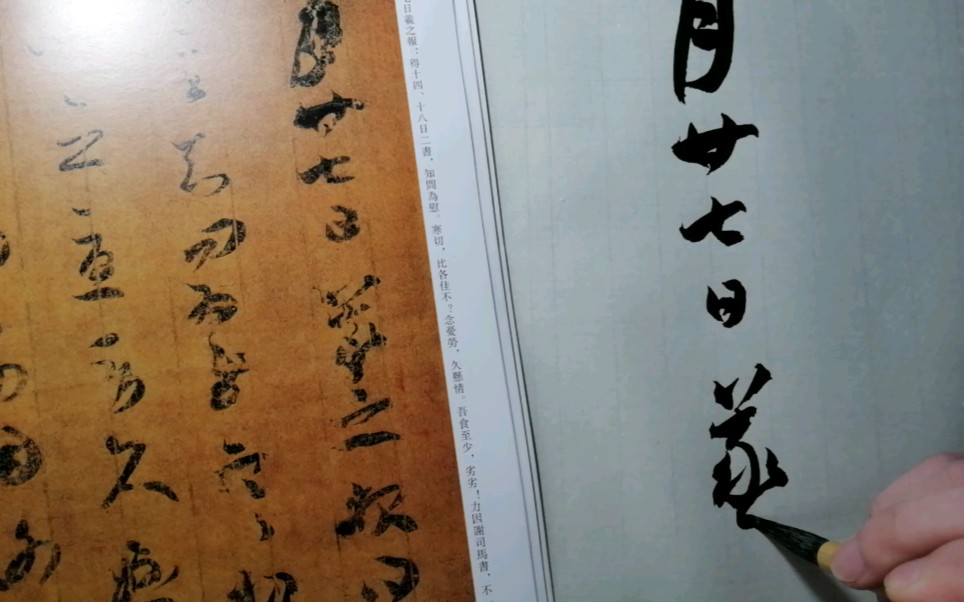 月廿七日羲
七日羲之報：得十四、十八日二書，知問為慰。寒切，比各佳不？念憂勞，久懸情。吾食至少，劣劣！力因謝司馬書，不
月廿七日羲之報得
知問為慰寒切
憂勞久懸